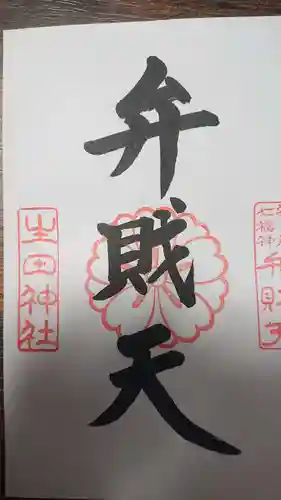 七福神
弁財天
弁財天
生田神社